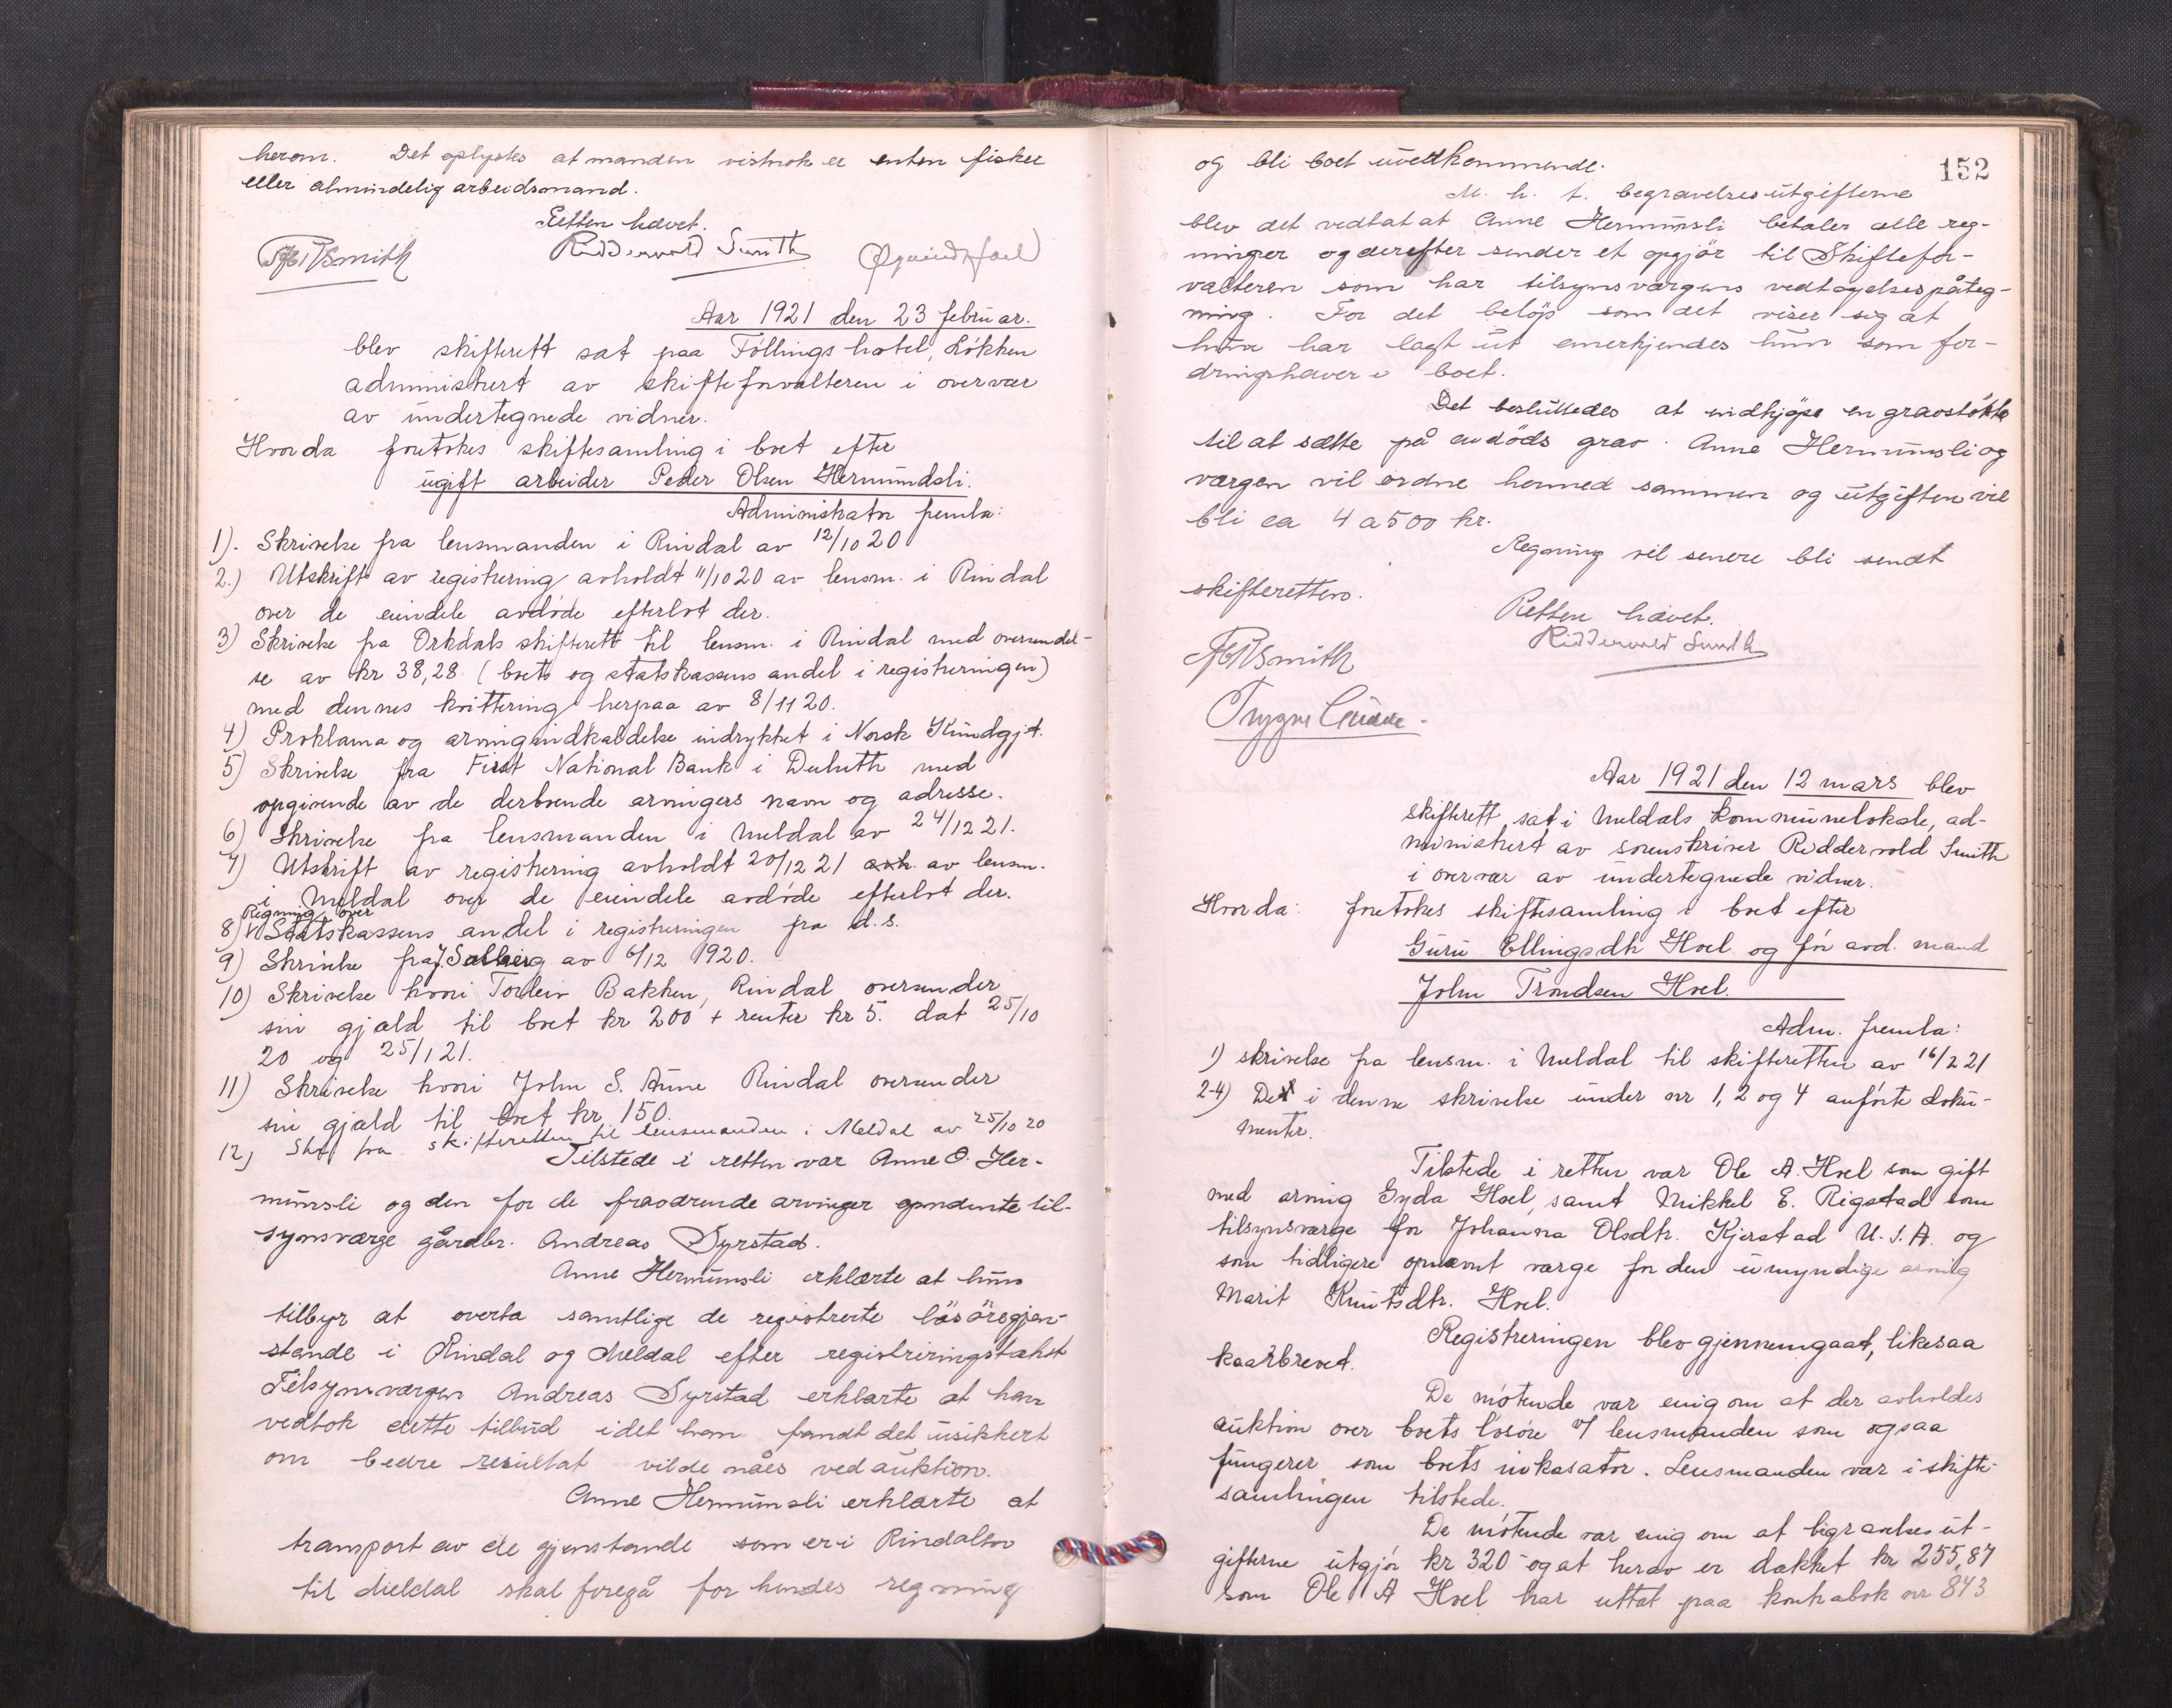 herom. Det oplystes at manden vistnok er enten fisker
eller almindelig arbeidsmand.
Retten hævet.
Smith Ridderwold Smith
Aar 1921 den 23 februar.
blev skifterett sat paa Föllings hotel, Løkken
administrert av skifteforvalteren i overvær
av undertegnede vidner.
Hvorda foretokes skiftesamling i boet efter
ugift arbeider Peder Olsen Hermundsli.
Administrator fremla:
1). Skrivelse fra lensmanden i Rindal av 12/10 20
2.) Utskrift av registrering avholdt 11/10 20 av lensm. i Rindal
over de eiendele avdøde efterlot der.
3) Skrivelse fra Orkdals skifterett til lensm. i Rindal med oversendel-
se av kr 38,28 (boets og statskassens andel i registreringen)
med dennes kvittering herpaa av 8/11 20.
4) Proklama og arvingindkaldelse indrykket i Norsk Kundgjt.
5) Skrivelse fra First National Bank i Duluth med
opgivende av de derboende arvingers navn og adresse.
6) Skrivelse fra lensmanden i Meldal av 24/12 21.
7) Utskrift av registrering avholdt 20/12 21 av lensm.
i Meldal over de eiendele avdøde efterlot der.
Regning over
8) Statskassens andel i registreringen fra d.s.
9) Skrivelse fra J. Solberg av 6/12 1920.
10) Skrivelse hvori Torleiv Bakken, Rindal oversender
sin gjæld til boet kr 200 + renter kr 5. dat 25/10
20 og 25/1 21.
11) Skrivelse hvori John S. Aune Rindal oversender
sin gjæld til boet kr 150.
12) Skr fra skifteretten til lensmanden i Meldal av 25/10 20
Tilstede i retten var Anne O. Her-
munsli og den for de fraværende arvinger opnævnte til-
synsværge gårdbr. Andreas Syrstad.
Anne Hermunsli erklærte at hun
tilbyr at overta samtlige de registrerte lösöregjen-
stande i Rindal og Meldal efter registreringstakst
Tilsynsværgen Andreas Syrstad erklærte at han
vedtok dette tilbud idet han fandt det usikkert
om bedre resultat vilde nåes ved auktion.
Anne Hermunsli erklærte at
transport av de gjenstande som er i Rindalen
til Meldal skal foregå for hendes regning
152
og bli boet uvedkommende.
M. h. t. begravelsesutgifterne
blev det vedtat at Anne Hermunsli betaler alle reg-
ninger og derefter sender et opgjör til Skiftefor-
valteren som har tilsynsværgens vedtagelsespåteg-
ning. For det beløp som det viser sig at
hun har lagt ut anerkjendes hun som for-
dringshaver i boet.
Det besluttedes at indkjøpe en gravstötte
til at sætte på avdöds grav. Anne Hermunsli og
værgen vil ordne hermed sammen og utgiften vil
bli ca 4 a 500 kr.
Regning vil senere bli sendt
skifteretten.
Retten hævet.
Ridderwold Smith
Smith
Trygve
Aar 1921 den 12 mars blev
skifterett sat i Meldals kommunelokale, ad-
ministrert av sorenskriver Ridderwold Smith
i overvær av undertegnede vidner.
Hvorda: foretokes skiftesamling i boet efter
Guru Ellingsdtr Hoel og før avd. mand
John Trondsen Hoel.
Adm. fremla:
1) skrivelse fra lensm. i Meldal til skifteretten av 16/2 21
2-4) De i denne skrivelse under nr 1, 2 og 4 anførte doku-
menter.
Tilstede i retten var Ole A. Hoel som gift
med arving Gyda Hoel, samt Mikkel E. Rigstad som
tilsynsværge for Johanna Olsdtr. Kjerstad U.S.A. og
som tidligere opnævnt værge for den umyndige arving
Marit Knutsdtr. Hoel.
Registreringen blev gjennemgaat, likesaa
kaarbrevet.
De møtende var enig om at der avholdes
auktion over boets løsøre v/ lensmanden som ogsaa
fungerer som boets inkasator. Lensmanden var i skifte-
samlingen tilstede.
De møtende var enig om at begravelsesut-
gifterne utgjør kr 320 og at herav er dækket kr 255,87
som Ole A Hoel har uttat paa kontrabok nr 843